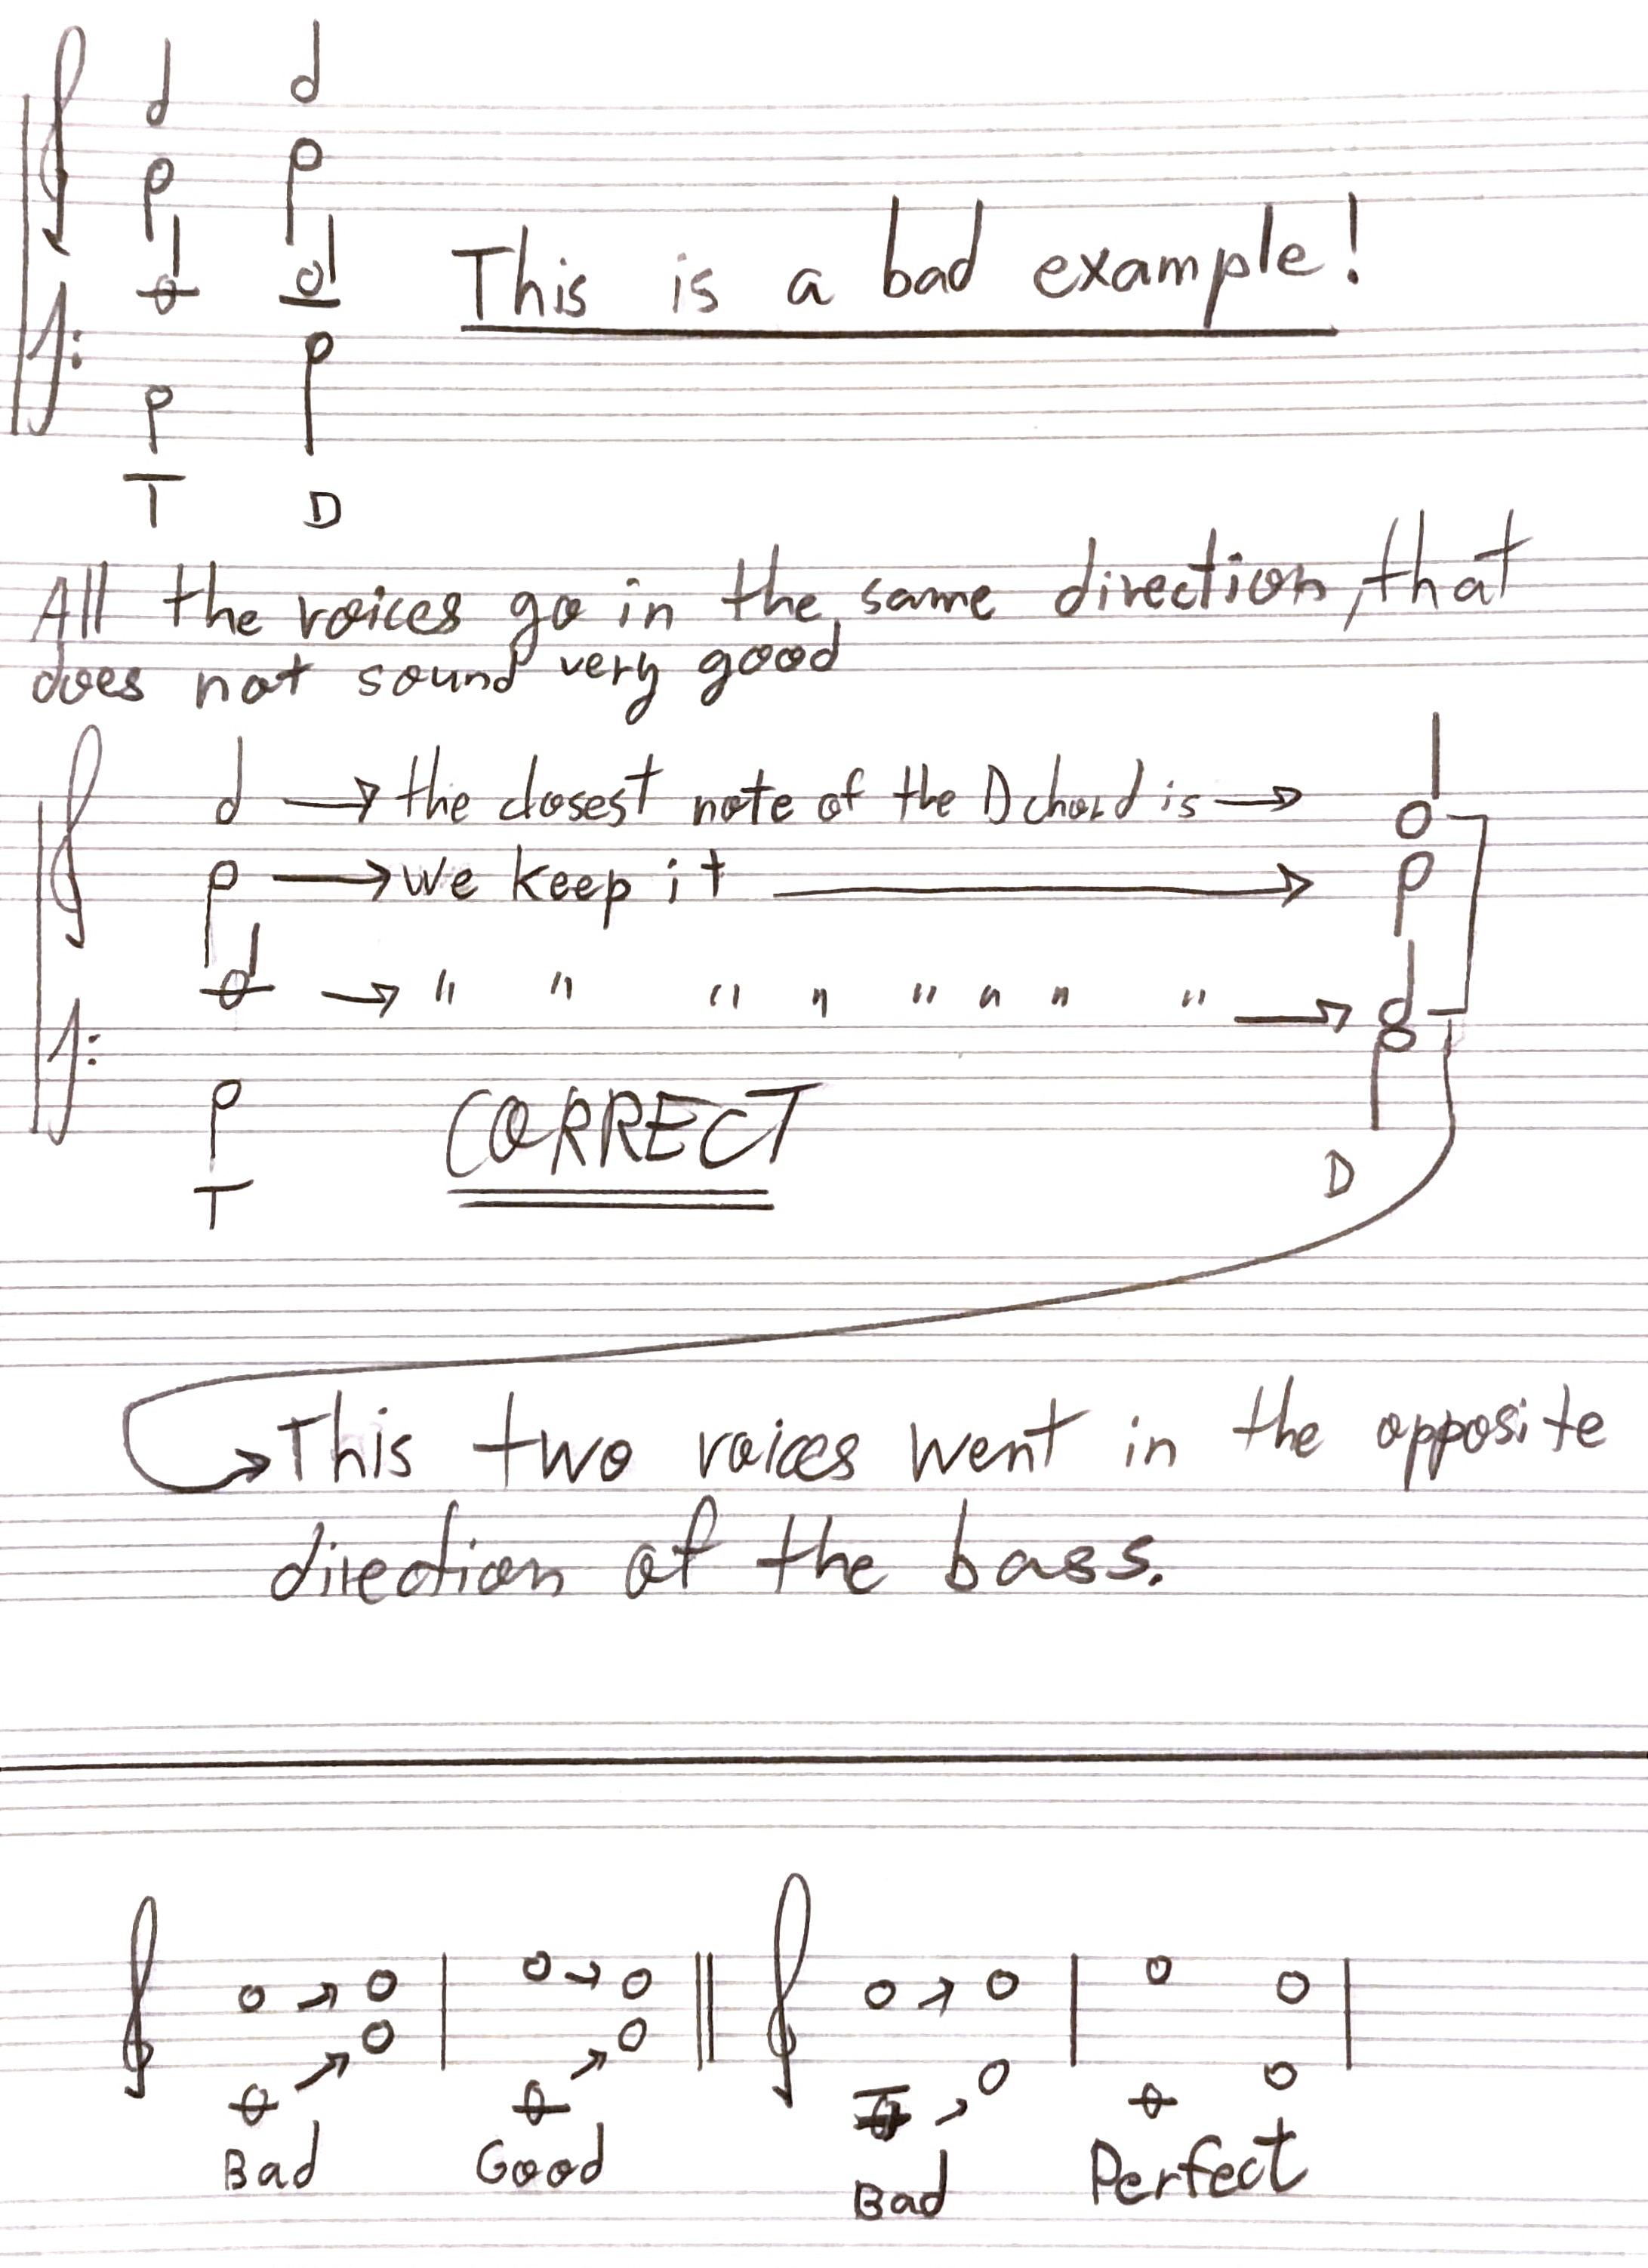 This is a bad example!
T D
All the voices go in the same direction, that
does not sound very good
→ the closest note of the D chord is →
→ we keep it →
→ " " " " " " " " →
CORRECT
T D
This two voices went in the opposite
direction of the bass.
Bad Good Bad Perfect